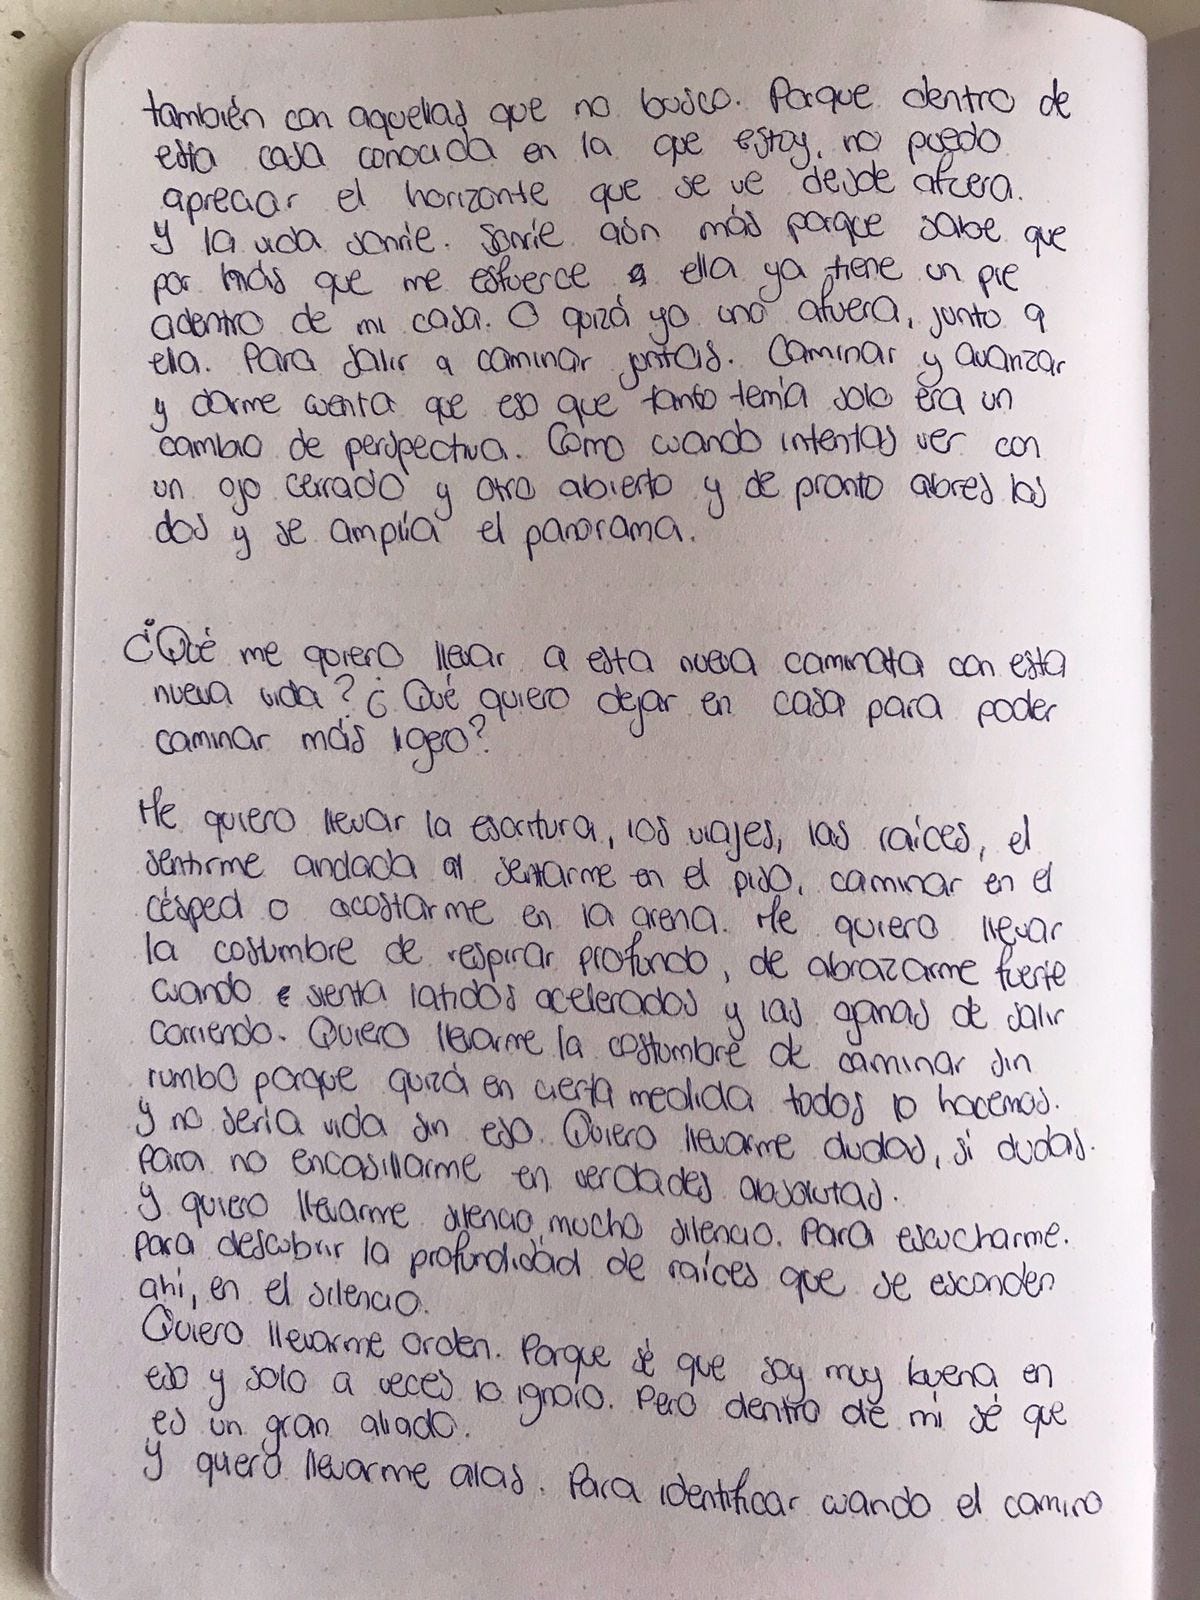 también con aquellas que no busco. Porque dentro de
esta casa conocida en la que estoy, no puedo
apreciar el horizonte que se ve desde afuera.
Y la vida sonríe. Sonríe aún más porque sabe que
por más que me esfuerce ella ya tiene un pie
adentro de mi casa. O quizá yo uno afuera, junto a
ella. Para salir a caminar juntas. Caminar y avanzar
y darme cuenta que eso que tanto temía solo era un
cambio de perspectiva. Como cuando intentas ver con
un ojo cerrado y otro abierto y de pronto abres los
dos y se amplía el panorama.
¿Qué me quiero llevar a esta nueva caminata con esta
nueva vida? ¿Qué quiero dejar en casa para poder
caminar más ligero?
Me quiero llevar la escritura, los viajes, las raíces, el
sentirme anclada al sentarme en el piso, caminar en el
césped o acostarme en la arena. Me quiero llevar
la costumbre de respirar profundo, de abrazarme fuerte
cuando sienta latidos acelerados y las ganas de salir
corriendo. Quiero llevarme la costumbre de caminar sin
rumbo porque quizá en cierta medida todos lo hacemos.
Y no sería vida sin eso. Quiero llevarme dudas, si dudas.
Para no encasillarme en verdades absolutas.
Y quiero llevarme silencio, mucho silencio. Para escucharme.
Para descubrir la profundidad de raíces que se esconden
ahí, en el silencio.
Quiero llevarme orden. Porque sé que soy muy buena en
eso y solo a veces lo ignoro. Pero dentro de mi sé que
es un gran aliado.
Y quiero llevarme alas. Para identificar cuando el camino